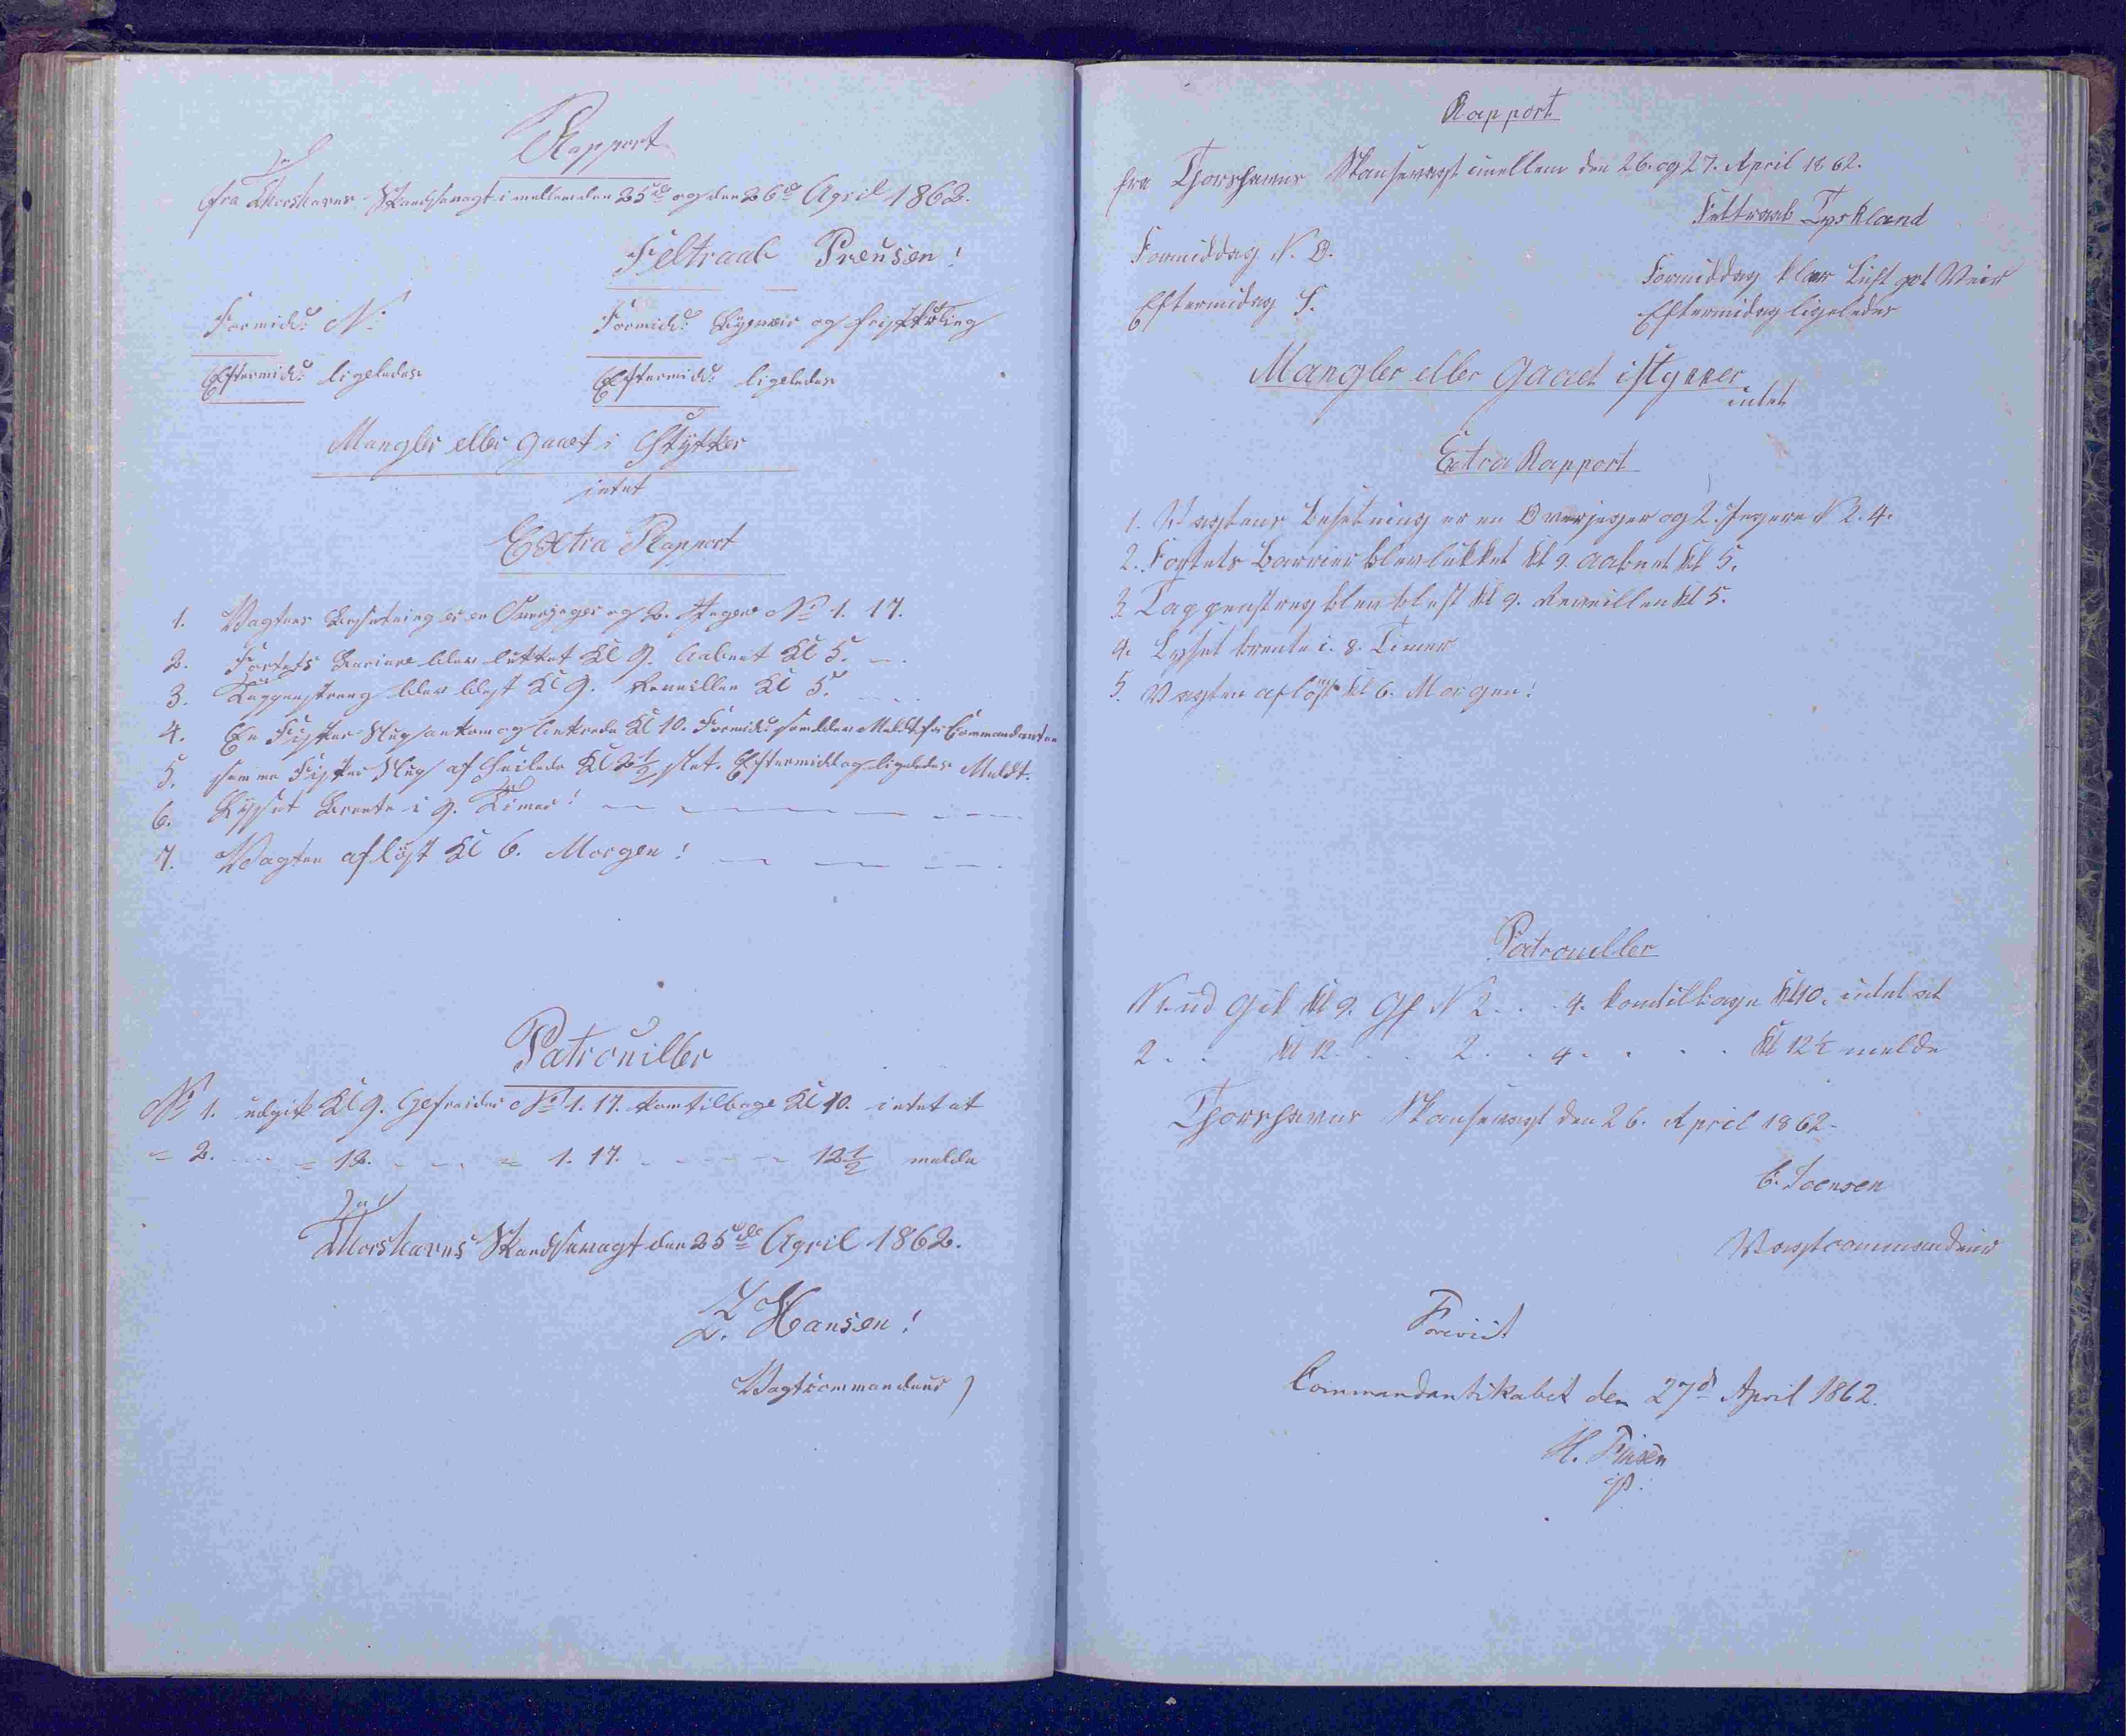 Rapport
fra Thorshavns Skandsevagt imellem den 25de og den 26de April 1862.
Feltraab Preusen!
Formid: N:
Formid: Rygveir og frisk Kuling
Eftermid: ligeledes
Eftermid: ligeledes
Mangler eller gaaet i Stykker
intet
Extra Rapport
1. Vagtens Besetning er en Overjeger og 2. Jegere No 1. 17.
2. Fortets Bariere blev lukket Kl 9. Aabnet Kl 5.
3. Tappenstreg blev blest Kl 9. Reveillen Kl 5.
4. En Fisker Slup ankom og Ankrede Kl 10. Formid: som blev Meldt for Commandanten
5. samme Fisker Slup af Seilede Kl 2½ slet. Eftermiddag ligeledes Meldt.
6. Lyset Brente i 9. Timer!
7. Vagten afløst Kl 6. Morgen!
Patrouiller
No 1. udgik Kl 9. Gefreider No 1. 17. kom tilbage Kl 10. intet at
= 2. = 12. = 1. 17. 12½ melde
Thorshavns Skandsevagt den 25de April 1862.
Z. Hansen!
Vagtcommandeur
Rapport
fra Thorshavns Skansevagt imellem den 26. og 27. April 1862.
Feltraab Tyskland
Formiddag N. O.
Formiddag klar Luft got Veir
Eftermidag S.
Eftermidag ligeledes
Mangler eller Gaaet i stykker
intet
Extra Rapport
1. Vagtens Besetning er en Overjeger og 2. Jegere N 2. 4.
2. Fortets Barrier blev lukket Kl 9. aabnet Kl 5.
3. Tappenstreg blev blest Kl 9. Reveillen Kl 5.
4. Lyset brente i. 8. Timer
5. Vagten afløst Kl 6. Morgen!
Patrouiller
N 1. ud Gik Kl 9. Gf N 2. . . 4. kom tilbage Kl 10. intet at
2. . Kl 12. . . 2. . 4. . . . Kl 12½ melde
Thorshavns Skansevagt den 26. April 1862.
C. Joensen
Vagtcommandeur
Forevist
Commandantskabet den 27de April 1862.
H. Finsen